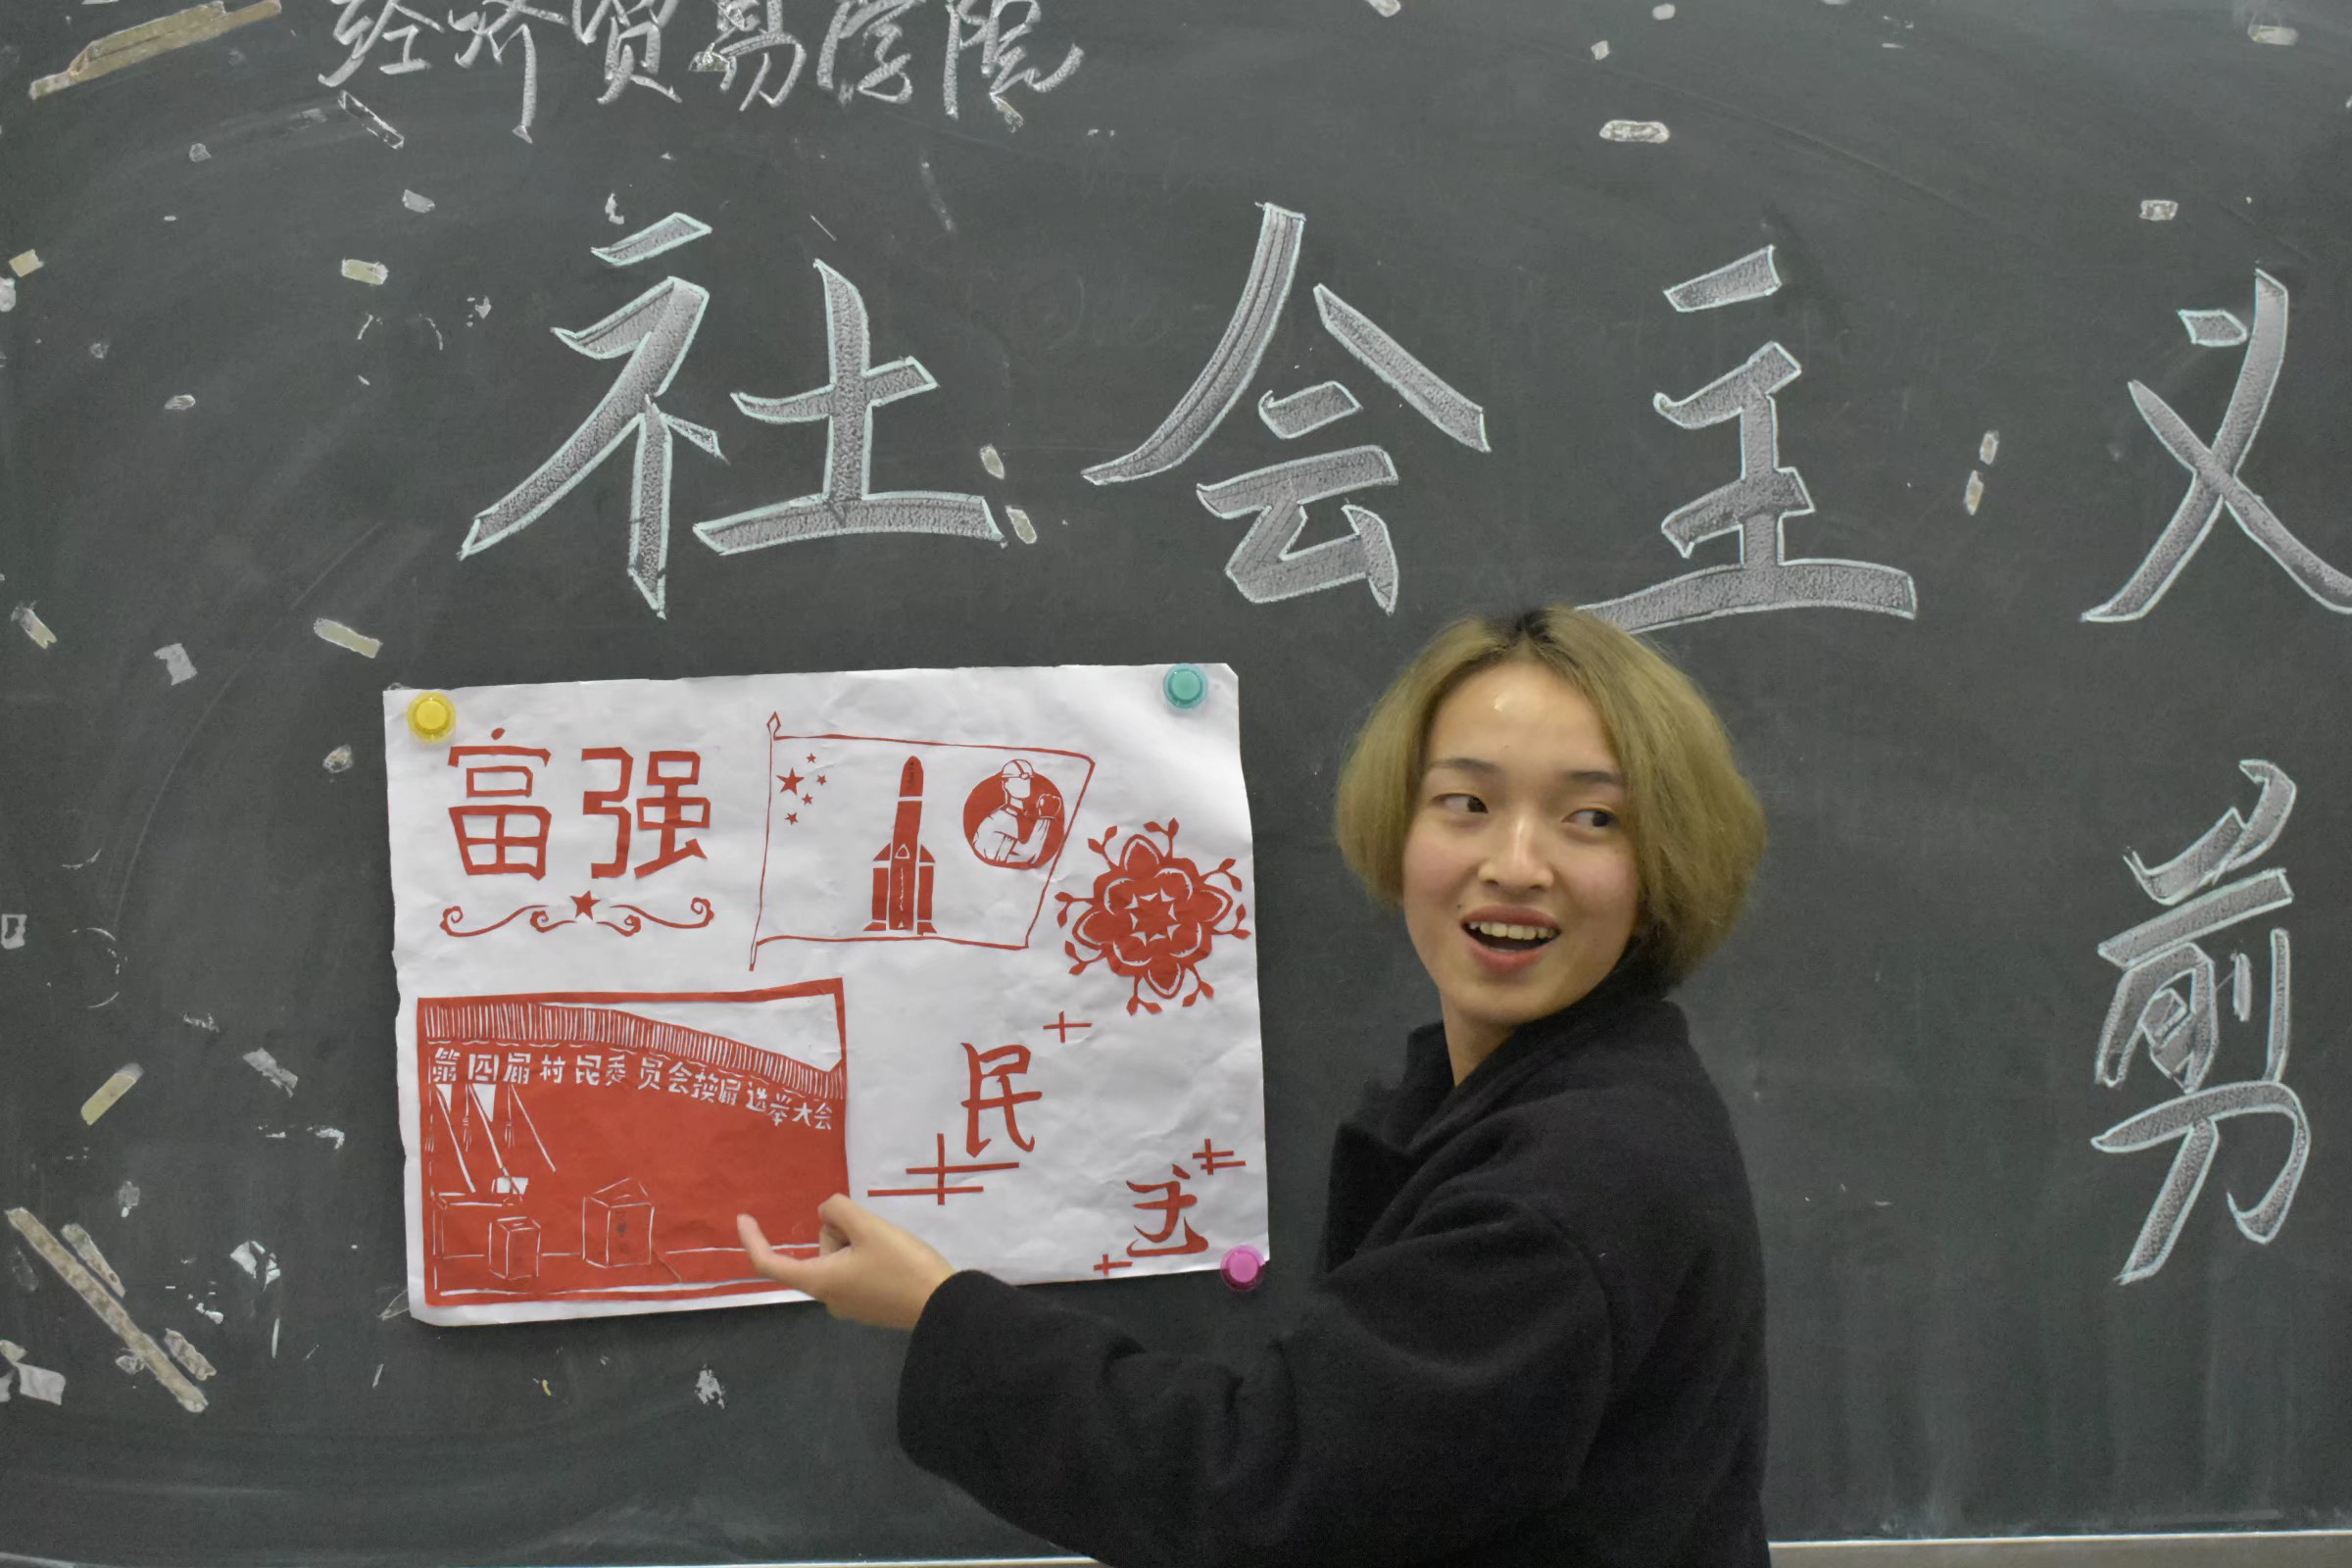 经济贸易学院
社会主义
剪
富强
第四届村民委员会换届选举大会
民
主